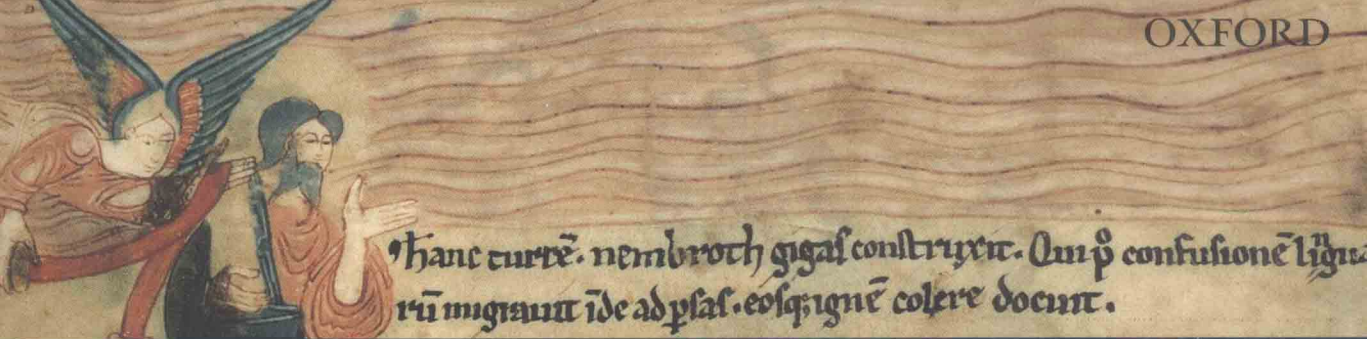 OXFORD
hanc turrē. nembroth gigas construxit. Qui p̊ confusionē līgua
rū migrauit īde ad ꝑsas. eosq; ignē colere docuit.